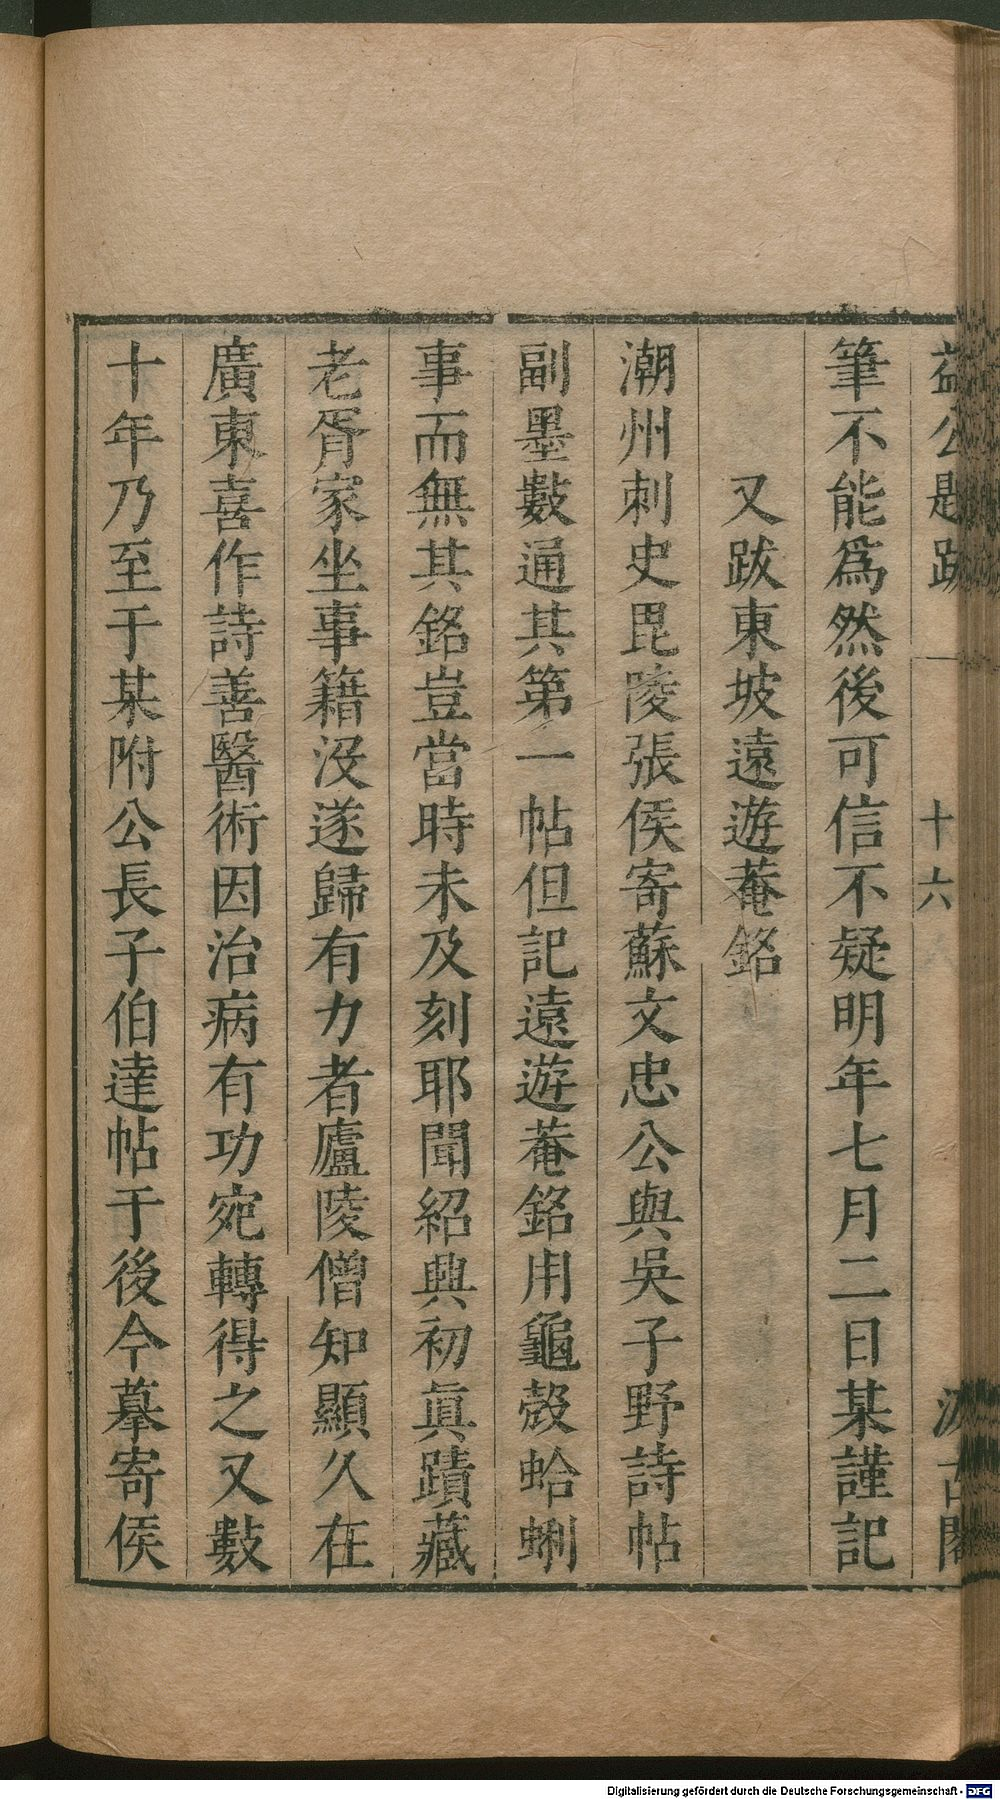 益公題跋 十六 汲古閣
筆不能爲然後可信不疑明年七月二日某謹記
又跋東坡遠遊菴銘
潮州刺史毘陵張侯寄蘇文忠公與吳子野詩帖
副墨數通其第一帖但記遠遊菴銘用龜殼蛤蜊
事而無其銘豈當時未及刻耶聞紹興初眞蹟藏
老胥家坐事籍沒遂歸有力者廬陵僧知顯久在
廣東喜作詩善醫術因治病有功宛轉得之又數
十年乃至于某附公長子伯達帖于後今摹寄侯
Digitalisierung gefördert durch die Deutsche Forschungsgemeinschaft - DFG